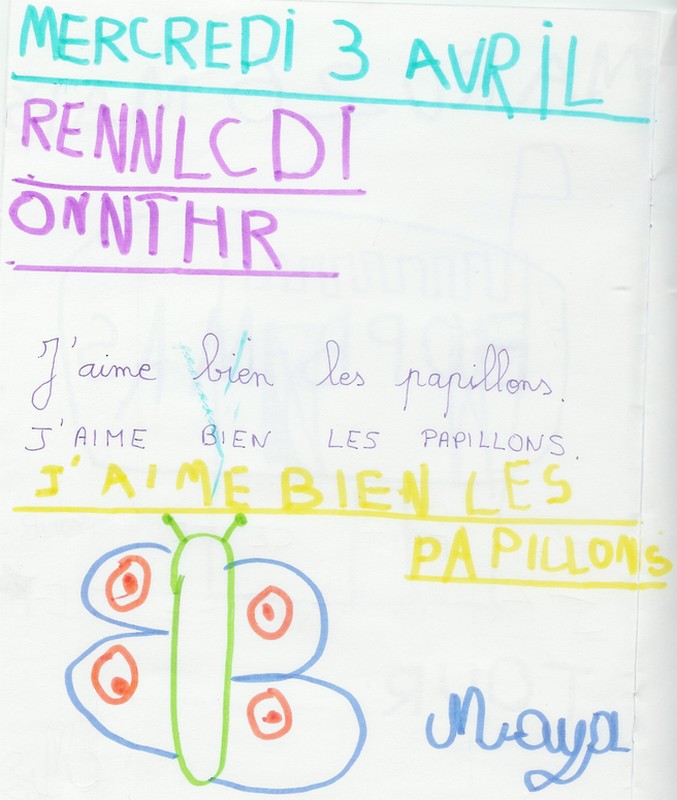 MERCREDI 3 AVRIL
RENNLCDI
ONNTHR
J'aime bien les papillons.
J'AIME BIEN LES PAPILLONS.
J'AIME BIEN LES
PAPILLONS
Maya